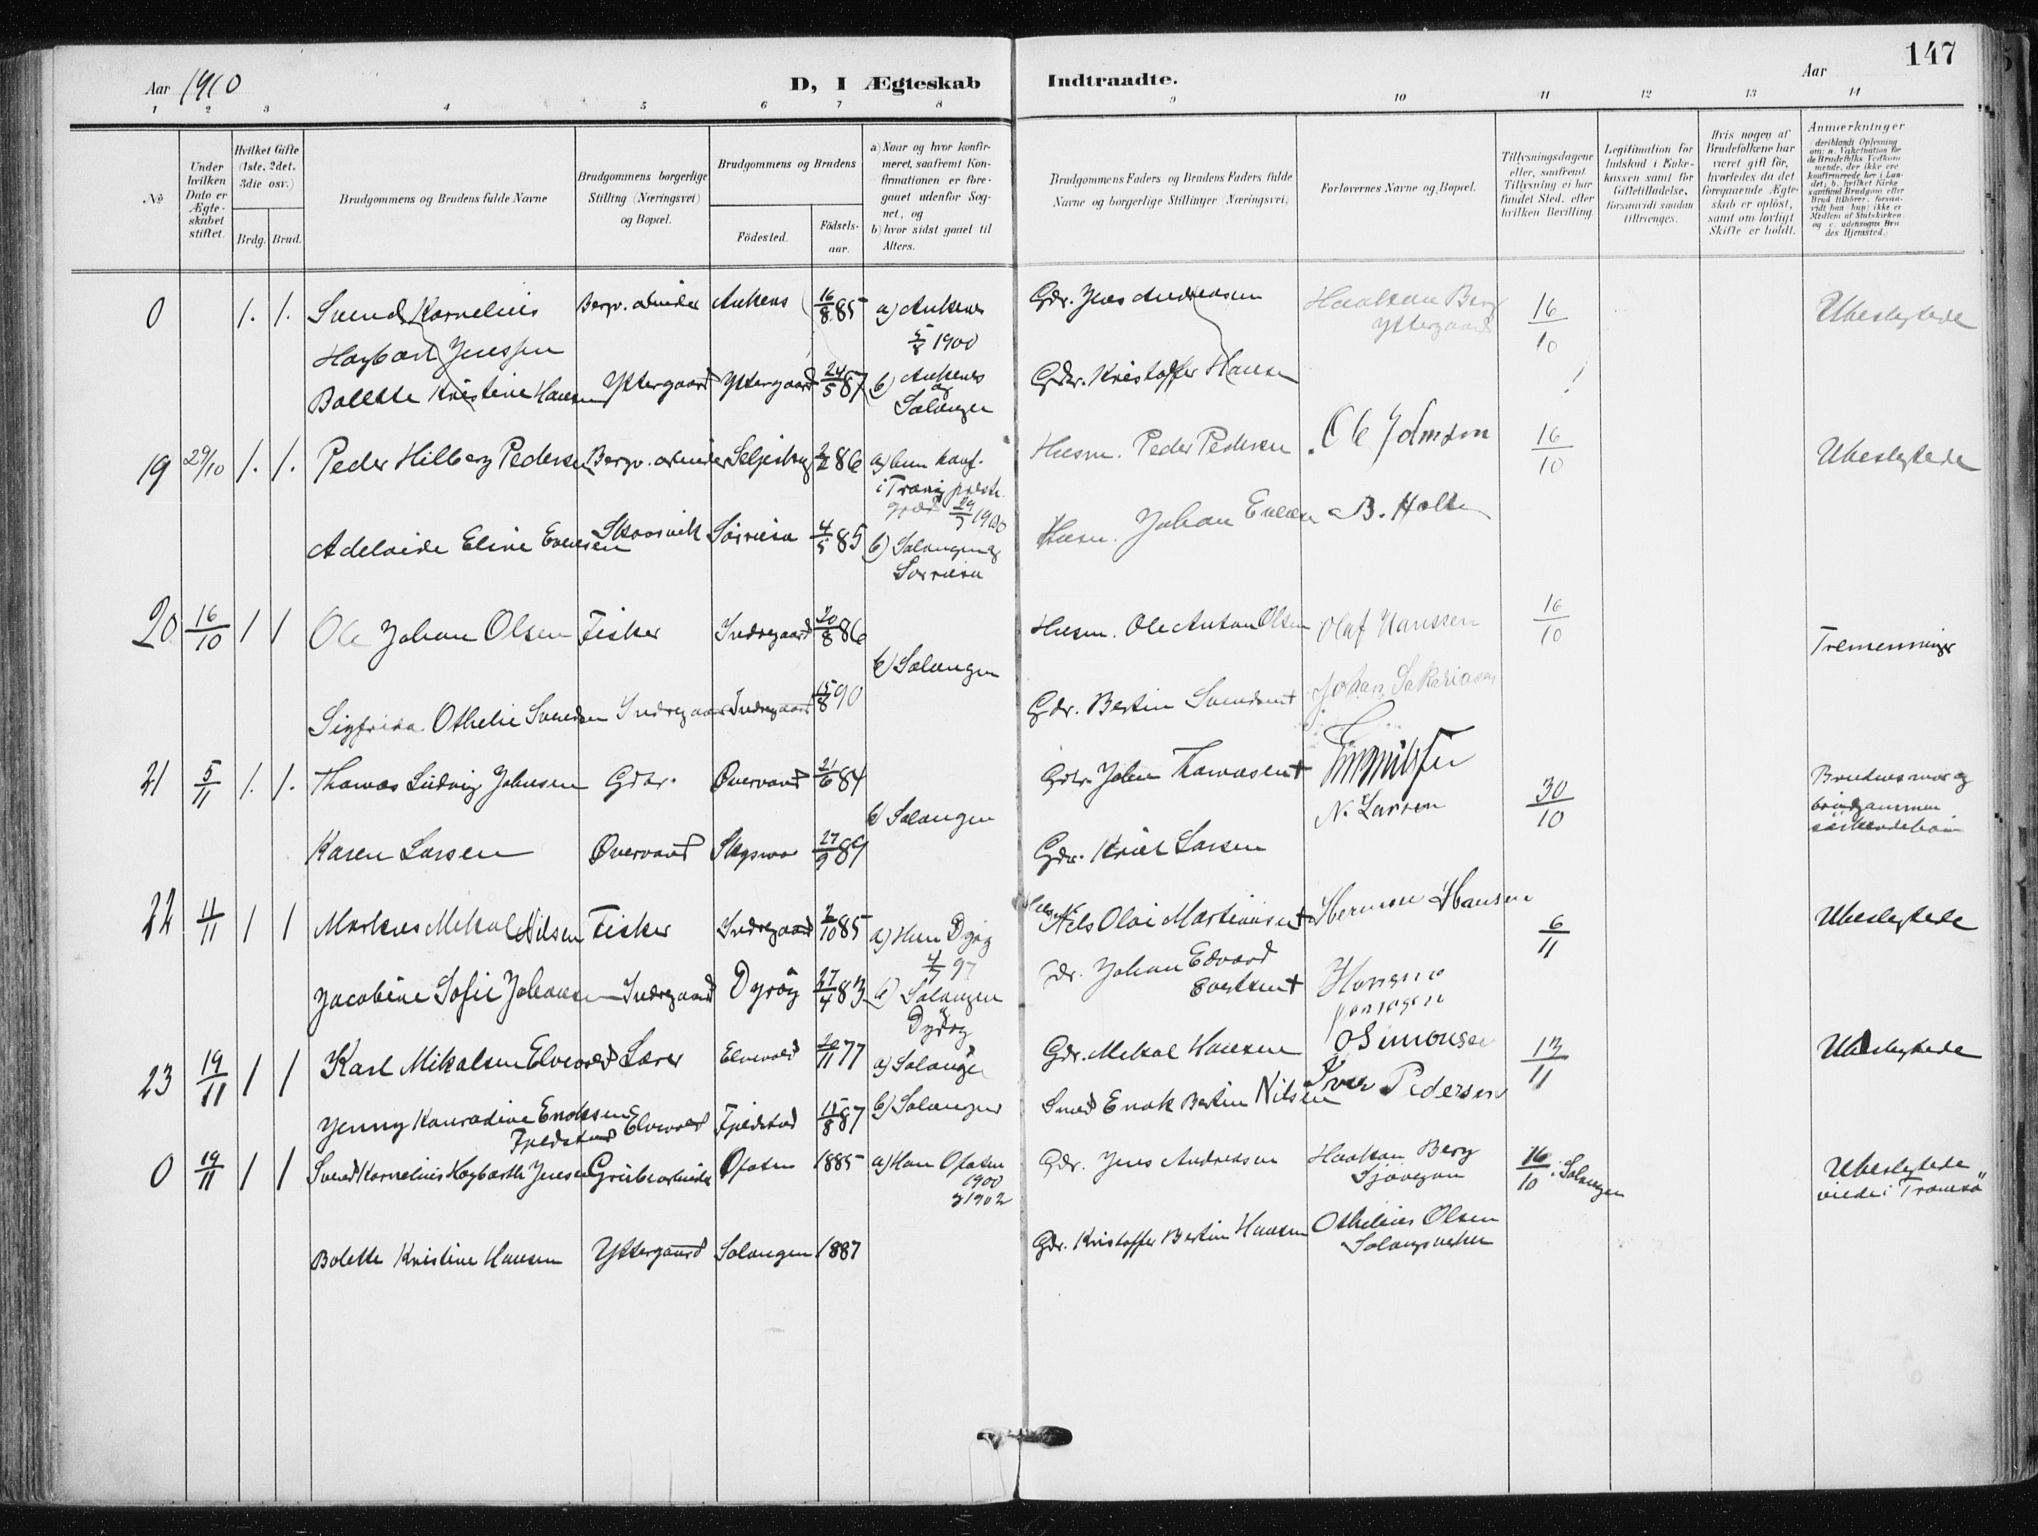 Aar 1910
D, I Ægteskab Indtraadte.
Aar 147
1 2 3 4 5 6 7 8 9 10 11 12 13 14
No
Under hvilken Dato er Ægteskabet stiftet.
Hvilket Gifte (1ste, 2det, 3die osv.)
Brdg. Brud.
Brudgommens og Brudens fulde Navne
Brudgommens borgerlige Stilling (Næringsvei) og Bopæl.
Brudgommens og Brudens
Födested. Födselsaar.
a) Naar og hvor konfirmeret, saafremt Konfirmationen er foregaaet udenfor Sognet, og
b) hvor sidst gaaet til Alters.
Brudgommens Faders og Brudens Faders fulde Navne og borgerlige Stillinger (Næringsvei)
Forlovernes Navne og Bopæl.
Tillysningsdagene eller, saafremt Tillysning ei har fundet Sted, efter hvilken Bevilling.
Legitimation for Indskud i Enkekassen samt for Giftetilladelse, forsaavidt saadan tiltrænges.
Hvis nogen af Brudefolkene har været gift för, hvorledes da det foregaaende Ægteskab er oplöst, samt om lovligt Skifte er holdt.
Anmærkninger
0 1. 1. Svend Kornelius Bergv. arbeider Ankenes 16/8 85 a) Ankenes Gdr. Jens Andreasen Haakon Berg 16/10 Ubeslegtede
Hagbart Jenssen 1900 Yttergaard
Bolette Kristine Hansen Yttergaard Yttergaard 24/5 87 b) Ankenes og Salangen Gdr. Kristoffer Hansen
19 29/10 1. 1. Peder Hilberg Pedersen Bergv. arbeider Seljeskog 86 Husm. Peder Pedersen Ole Johnsen 16/10 Ubeslegtede
i Tranø 1900
Adelaide Eline Evensen Sørreisa 4/5 85 b) Salangen og Sørreisa Husm. Johan Evensen B. Holte
20 16/10 1 1 Ole Johan Olsen Fisker Indregaard 20/8 86 Husm. Ole Anton Olsen Olaf Hanssen 16/10 Tremenninger
b) Salangen
Sigfrida Othelie Svendsen Indregaard Indregaard 15/8 90 Gdr. Bertin Svendsen † Johan Sakariasen
21 5/11 1. 1. Thomas Ludvig Johnsen Gdbr. Øvervand 21/6 84 Gdbr. John Thomasen † 30/10 Brudens mor og
b) Salangen N. Larsen brudgommen
Karen Larsen Øvervand 27/9 89 Gdr. Larsen søskendebørn
22 11/11 1 1 Markus Mikal Nilsen Fisker Indregaard 2/10 85 a) Hun Dyrøy 4/7 97 Nels Olai Martinusen † Herman Hansen 6/11 Ubeslegtede
Jacobine Sofie Johansen Indregaard Dyrøy 27/4 83 b) Salangen Dyrøy Gdr. Johan Edvard Evertsen † Hansine Johnsen
23 19/11 1 1 Karl Mikalsen Elvevold Lærer Elvevold 20/11 77 a) Salangen Gdr. Mikal Hansen O Simonsen 13/11 Ubeslegtede
Jenny Konradine Enoksen Fjeldstad Elvevold Fjeldstad 15/8 87 b) Salangen Smed Enok Bertin Nilsen Iver Pedersen
0 19/11 1 1 Svend Kornelius Hagbarth Jensen Grubearbeider Ofoten 1885 a) Han Ofoten 1900 Gdr. Jens Andreasen Haakon Berg Sjøvegan 16/10 i Salangen Ubeslegtede
1902 viede i Tromsø
Bolette Kristine Hansen Yttergaard Salangen 1887 Gdr. Kristoffer Bertin Hansen Othelius Olsen Salangsverket